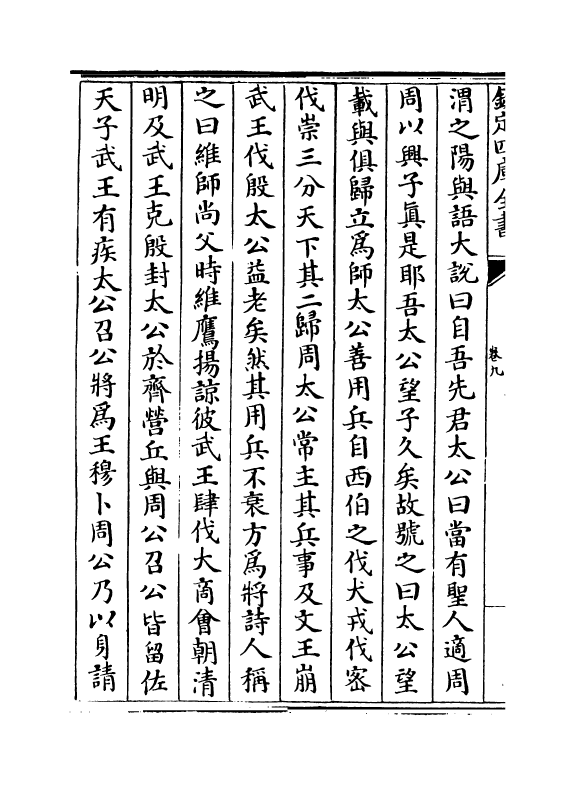 欽定四庫全書
卷九
渭之陽與語大說曰自吾先君太公曰當有聖人適周
周以興子真是耶吾太公望子久矣故號之曰太公望
載與俱歸立為師太公善用兵自西伯之伐犬戎伐密
伐崇三分天下其二歸周太公常主其兵事及文王崩
武王伐殷太公益老矣然其用兵不衰方為將詩人稱
之曰維師尚父時維鷹揚諒彼武王肆伐大商會朝清
明及武王克殷封太公於齊營丘與周公召公皆留佐
天子武王有疾太公召公將為王穆卜周公乃以身請